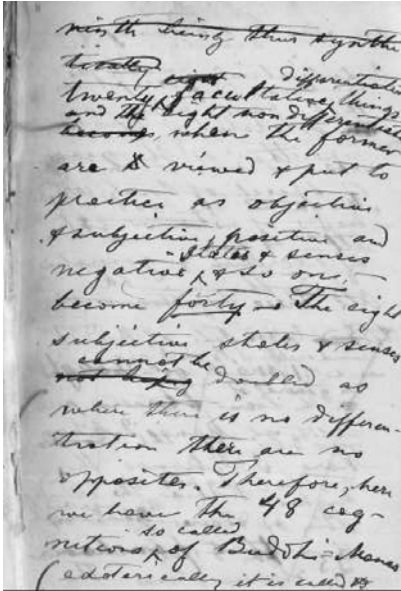 ninth being thus synthe
tically eight differentiation
twenty facultative things
and the eight non differentiated
become, when the former
are viewed & put to
practice as objective
& subjective, positive and
states & senses
negative & so on -
become forty - The eight
subjective states & senses
cannot be
not being doubled as
where there is no differen-
tiation there are no
opposites. Therefore, here
we have the 48 cog-
so called
nitions of Buddhi-Manas
(exoterically it is called